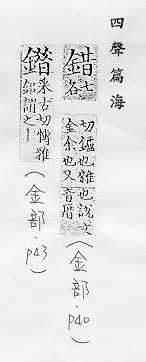 四聲篇海
錯七各切鑢也雜也說文
金涂也又音厝
(金部.p40)
來古切博雅
謂之
(金部.p43)